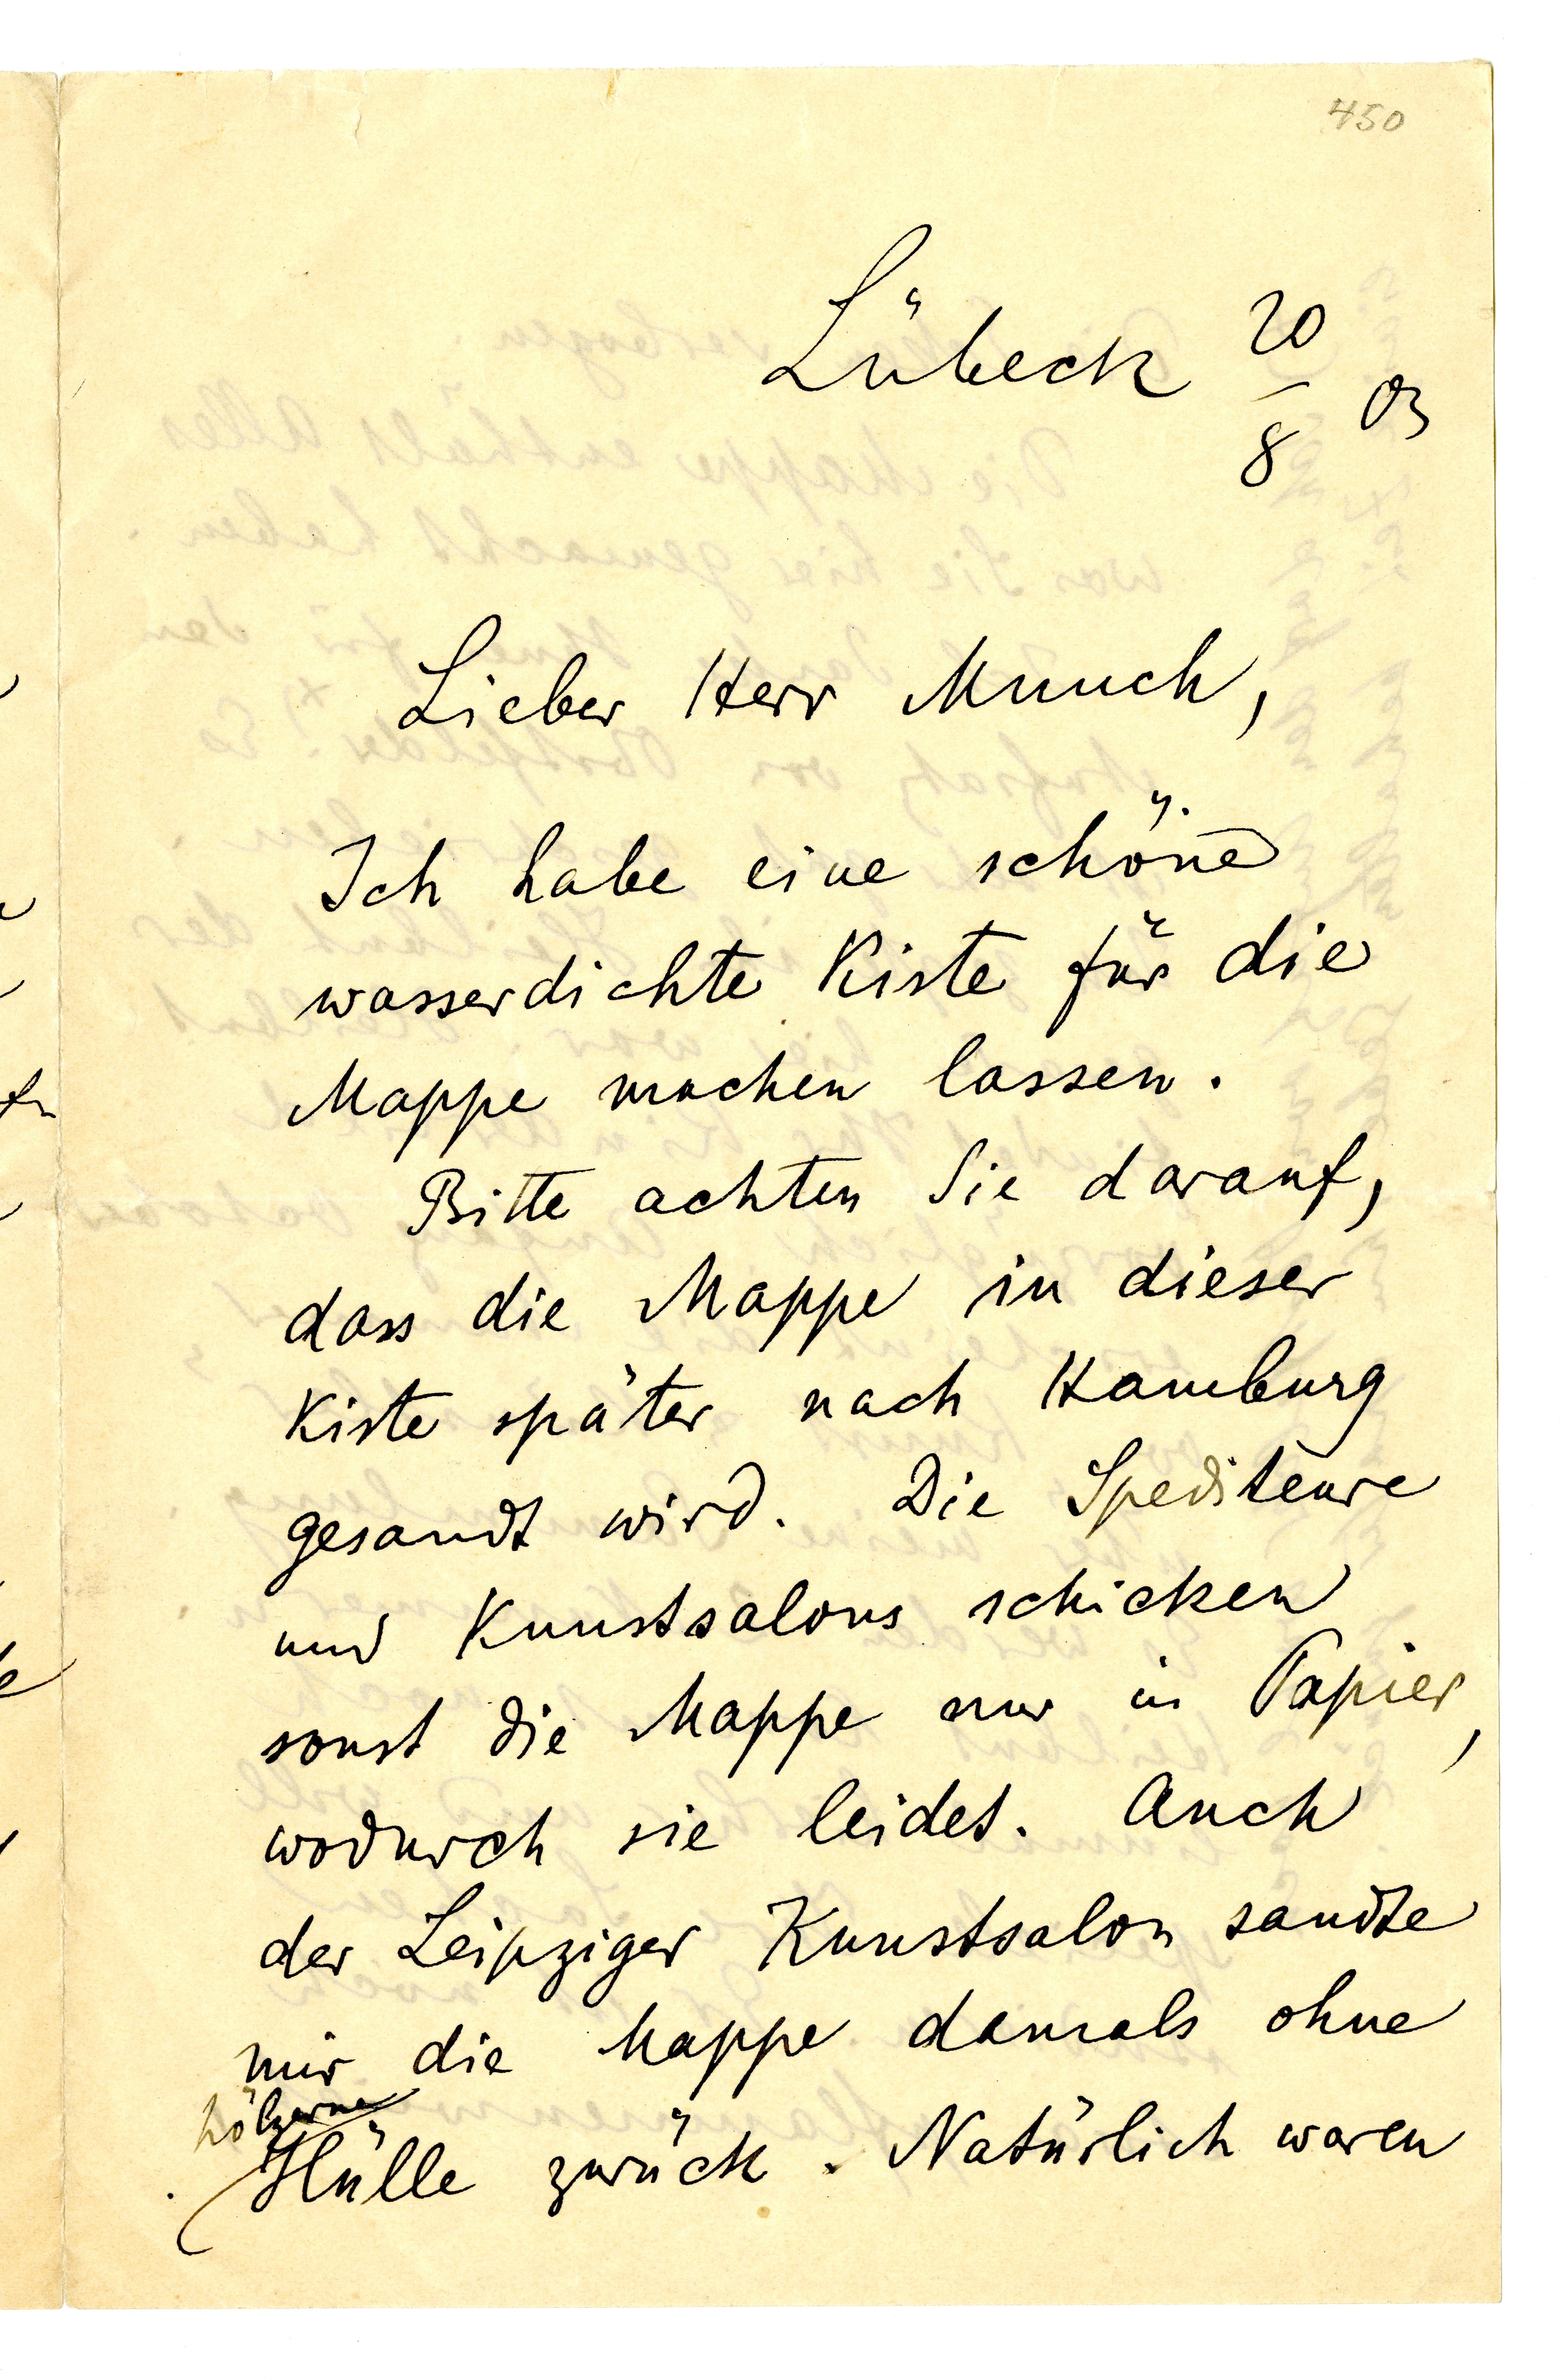 450
Lübeck 20/8 03
Lieber Herr Munch,
Ich habe eine schöne
wasserdichte Kiste für die
Mappe machen lassen.
Bitte achten Sie darauf,
dass die Mappe in dieser
Kiste später nach Hamburg
gesandt wird. Die Spediteure
und Kunstsalons schicken
sonst die Mappe nur in Papier,
wodurch sie leidet. Auch
der Leipziger Kunstsalon sandte
mir die Mappe damals ohne
hölzerne
Hülle zurück. Natürlich waren